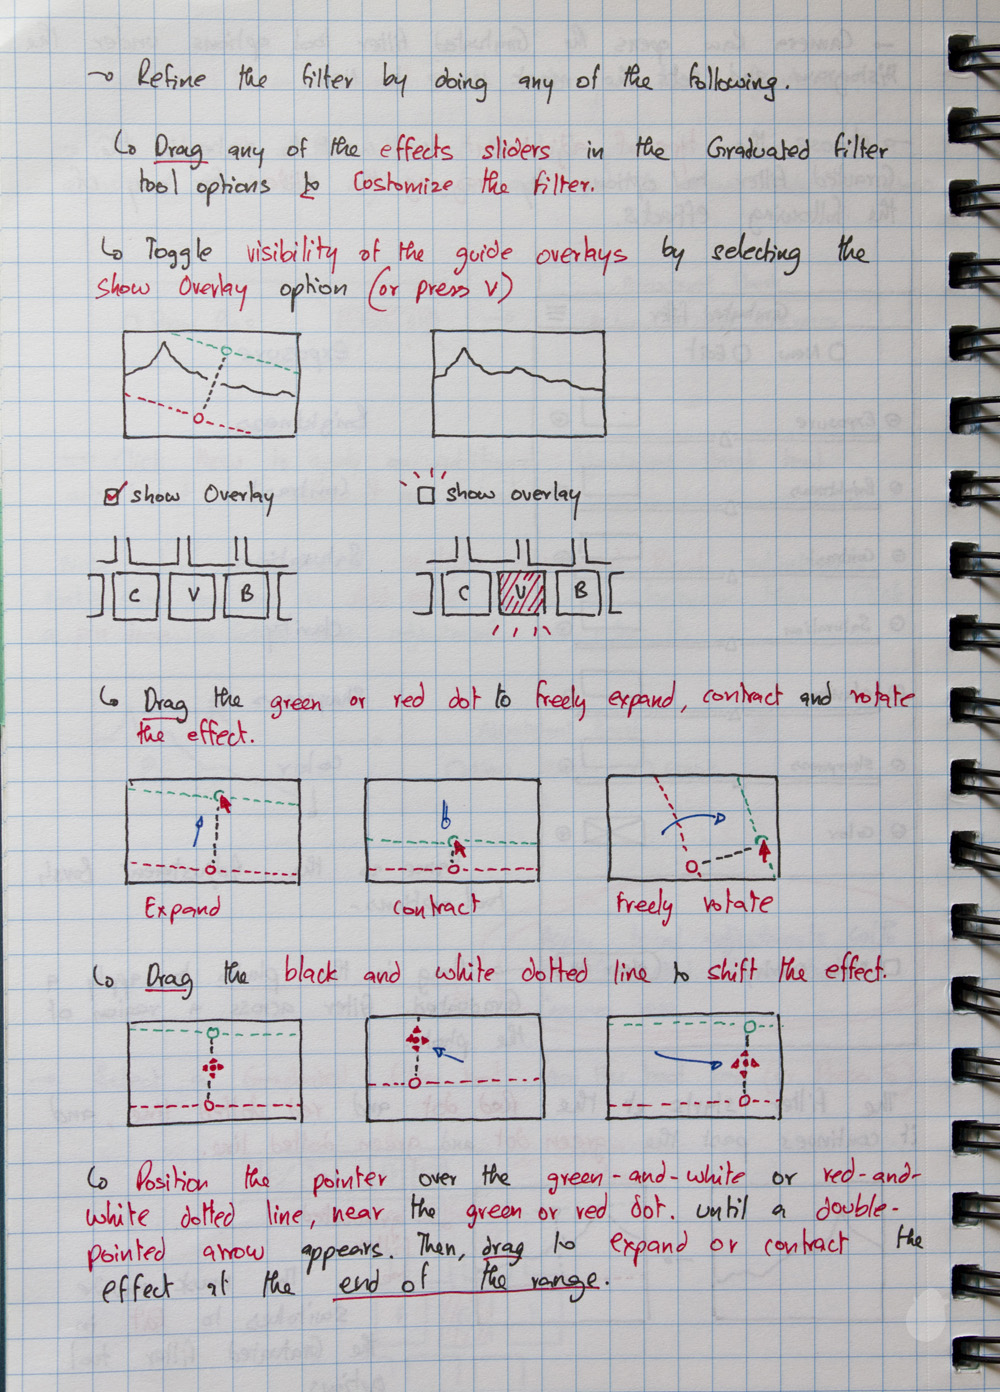 → Refine the filter by doing any of the following.
↳ Drag any of the effects sliders in the Graduated filter
tool options to Costomize the filter.
↳ Toggle visibility of the guide overlays by selecting the
show Overlay option (or press V)
show Overlay
show overlay
C V B
C V B
↳ Drag the green or red dot to freely expand, contract and rotate
the effect.
Expand
contract
freely rotate
↳ Drag the black and white dotted line to shift the effect.
↳ Position the pointer over the green-and-white or red-and-
white dotted line, near the green or red dot. until a double-
pointed arrow appears. Then, drag to expand or contract the
effect at the end of the range.